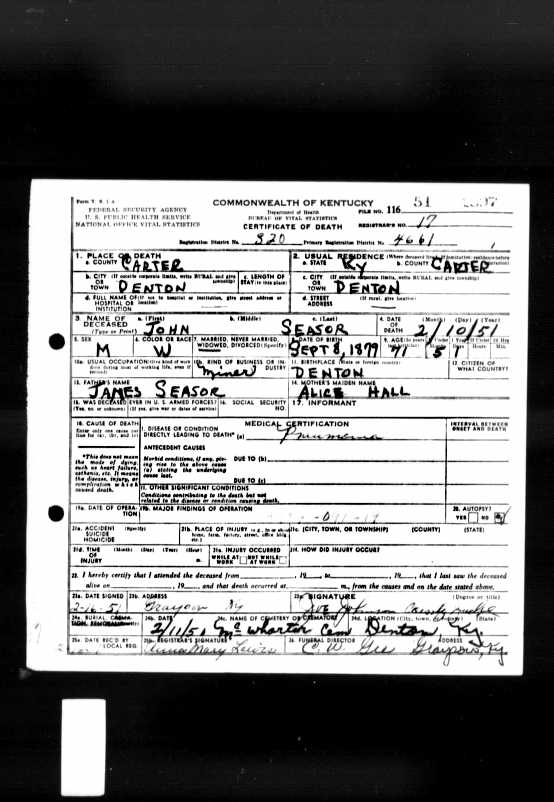 Form V. S. 1 A
COMMONWEALTH OF KENTUCKY
FEDERAL SECURITY AGENCY
U. S. PUBLIC HEALTH SERVICE
NATIONAL OFFICE VITAL STATISTICS
Department of Health
BUREAU OF VITAL STATISTICS
CERTIFICATE OF DEATH
FILE NO. 116 51
REGISTRAR'S NO. 17
Registration District No. 320 Primary Registration District No. 4661
1. PLACE OF DEATH
a. COUNTY CARTER
2. USUAL RESIDENCE (Where deceased lived. If institution: residence before
a. STATE KY b. COUNTY CARTER
b. CITY (If outside corporate limits, write RURAL and give township)
OR TOWN DENTON
c. LENGTH OF STAY (in this place)
c. CITY (If outside corporate limits, write RURAL and give township)
OR TOWN DENTON
d. FULL NAME OF (If not in hospital or institution, give street address or
HOSPITAL OR INSTITUTION
d. STREET ADDRESS (If rural, give location)
3. NAME OF DECEASED (Type or Print)
a. (First) b. (Middle) c. (Last)
JOHN SEASOR
4. DATE OF DEATH (Month) (Day) (Year)
2/10/51
5. SEX M
6. COLOR OR RACE W
7. MARRIED, NEVER MARRIED, WIDOWED, DIVORCED (Specify)
8. DATE OF BIRTH SEPT 8, 1879
9. AGE 71 5
10a. USUAL OCCUPATION (Give kind of work done during most of working life, even if retired)
10b. KIND OF BUSINESS OR INDUSTRY
miner
11. BIRTHPLACE (State or foreign country)
DENTON
12. CITIZEN OF WHAT COUNTRY?
13. FATHER'S NAME
JAMES SEASOR
14. MOTHER'S MAIDEN NAME
ALICE HALL
15. WAS DECEASED EVER IN U. S. ARMED FORCES?
(Yes, no, or unknown) (If yes, give war or dates of service)
16. SOCIAL SECURITY NO.
17. INFORMANT
18. CAUSE OF DEATH
Enter only one cause per line for (a), (b), and (c)
MEDICAL CERTIFICATION
INTERVAL BETWEEN ONSET AND DEATH
I. DISEASE OR CONDITION
DIRECTLY LEADING TO DEATH* (a) Pneumonia
*This does not mean the mode of dying, such as heart failure, asthenia, etc. It means the disease, injury, or complication which caused death.
ANTECEDENT CAUSES
Morbid conditions, if any, giving rise to the above cause (a) stating the underlying cause last.
DUE TO (b)
DUE TO (c)
II. OTHER SIGNIFICANT CONDITIONS
Conditions contributing to the death but not related to the disease or condition causing death.
19a. DATE OF OPERATION
19b. MAJOR FINDINGS OF OPERATION
20. AUTOPSY?
YES NO
21a. ACCIDENT (Specify)
SUICIDE
HOMICIDE
21b. PLACE OF INJURY (e.g., in or about home, farm, factory, street, office bldg., etc.)
21c. (CITY, TOWN, OR TOWNSHIP) (COUNTY) (STATE)
21d. TIME OF INJURY (Month) (Day) (Year) (Hour) m.
21e. INJURY OCCURRED
WHILE AT WORK NOT WHILE AT WORK
21f. HOW DID INJURY OCCUR?
22. I hereby certify that I attended the deceased from , 19 , to , 19 , that I last saw the deceased
alive on , 19 , and that death occurred at m., from the causes and on the date stated above.
23a. DATE SIGNED 2-16-51
23b. ADDRESS Grayson Ky
23c. SIGNATURE (Degree or title)
Johnson
24a. BURIAL, CREMATION, REMOVAL
24b. DATE 2/11/51
24c. NAME OF CEMETERY OR CREMATORY
McWhorter Cem
24d. LOCATION (City, town, or county) (State)
Denton Ky.
25a. DATE REC'D BY LOCAL REG.
25b. REGISTRAR'S SIGNATURE
Mary Lewis
26. FUNERAL DIRECTOR ADDRESS
C. W. Gee Grayson, Ky